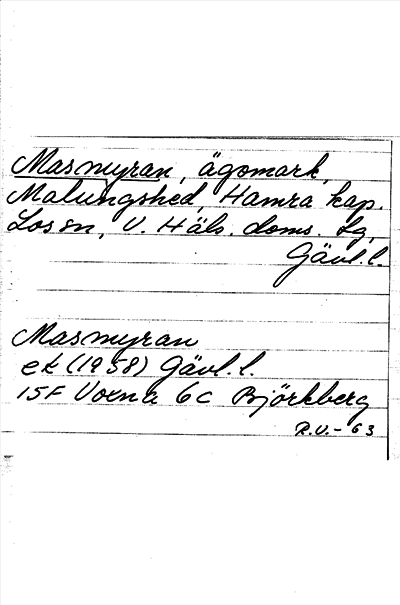 Masmyran, ägomark,
Malungshed, Hamra kap.
Los sn, V. Häls. doms. lg,
Gävl.l.
Masmyran
ek (1958) Gävl.l.
15F Voxna 6c Björkberg
R.V.-63